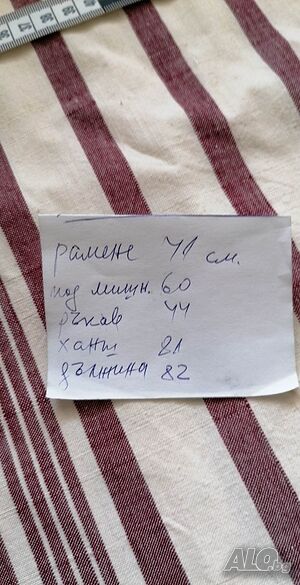 рамене 71 см.
под мишн. 60
ръкав 44
ханш 81
дължина 82
ALO.bg